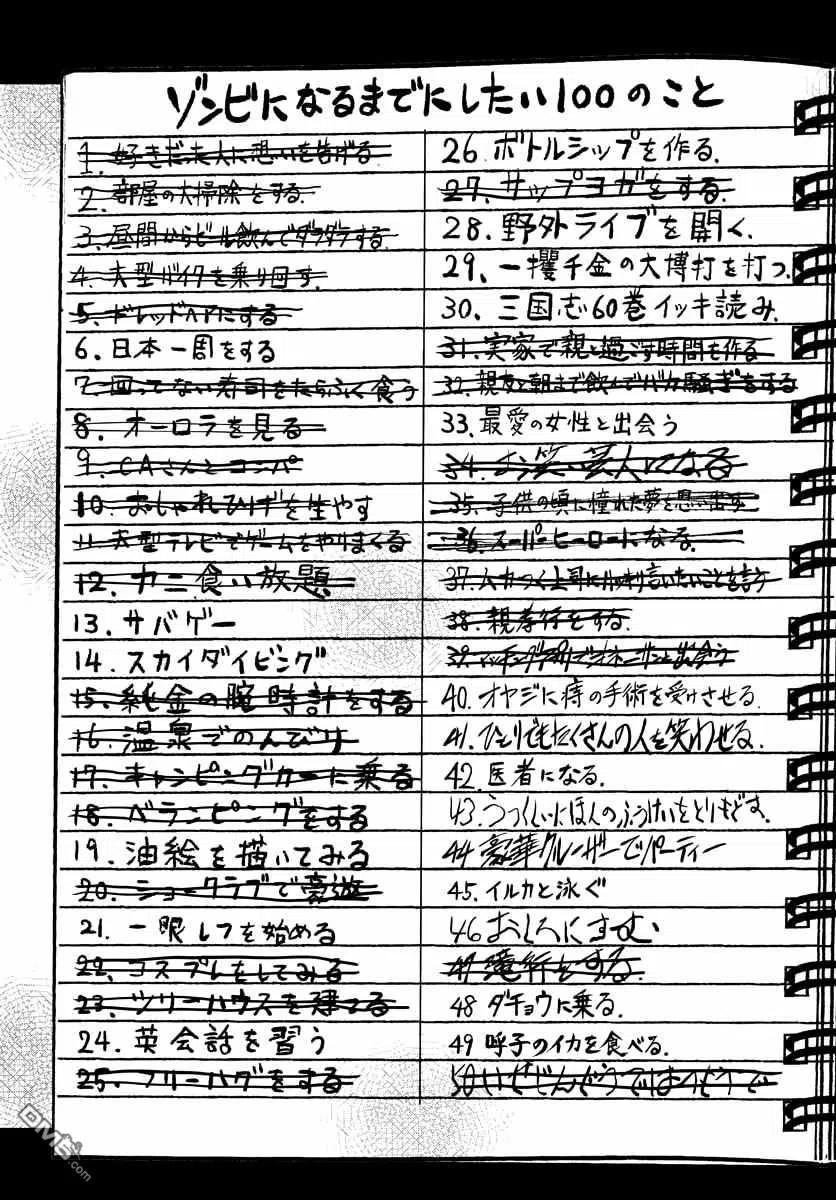 ゾンビになるまでにしたい100のこと
1. 好きだった人に想いを告げる
2. 部屋の大掃除をする.
3. 昼間からビール飲んでダラダラする
4. 大型バイクを乗り回す.
5. ドレッドヘアにする
6. 日本一周をする
7. 回ってない寿司をたらふく食う
8. オーロラを見る
9. CAさんとコンパ
10. おしゃれひげを生やす
11. 大型テレビでゲームをやりまくる
12. カニ食い放題
13. サバゲー
14. スカイダイビング
15. 純金の腕時計をする
16. 温泉でのんびり
17. キャンピングカーに乗る
18. ベランピングをする
19. 油絵を描いてみる
20. ショークラブで豪遊
21. 一眼レフを始める
22. コスプレをしてみる
23. ツリーハウスを建てる
24. 英会話を習う
25. フリーハグをする
26. ボトルシップを作る.
27. サップヨガをする.
28. 野外ライブを開く.
29、一攫千金の大博打を打つ.
30. 三国志60巻イッキ読み.
31. 実家で親と過ごす時間も作る
32. 親友と朝まで飲んでバカ騒ぎをする
33. 最愛の女性と出会う
34. お笑い芸人になる
35. 子供の頃に憧れた夢を思い出す
36. スーパーヒーローになる.
37. ムカつく上司にハッキリ言いたいことを言う
38. 親孝行をする.
39. マッチングアプリでオネーサンと出会う
40. オヤジに痔の手術を受けさせる.
41. ひとりでもたくさんの人を笑わせる.
42. 医者になる.
43. うつくしいにほんのふうけいをとりもどす.
44 豪華クルーザーでパーティー
45. イルカと泳ぐ
46 おしろにすむ
47 滝行をする.
48 ダチョウに乗る.
49 呼子のイカを食べる.
50
DM5
.com